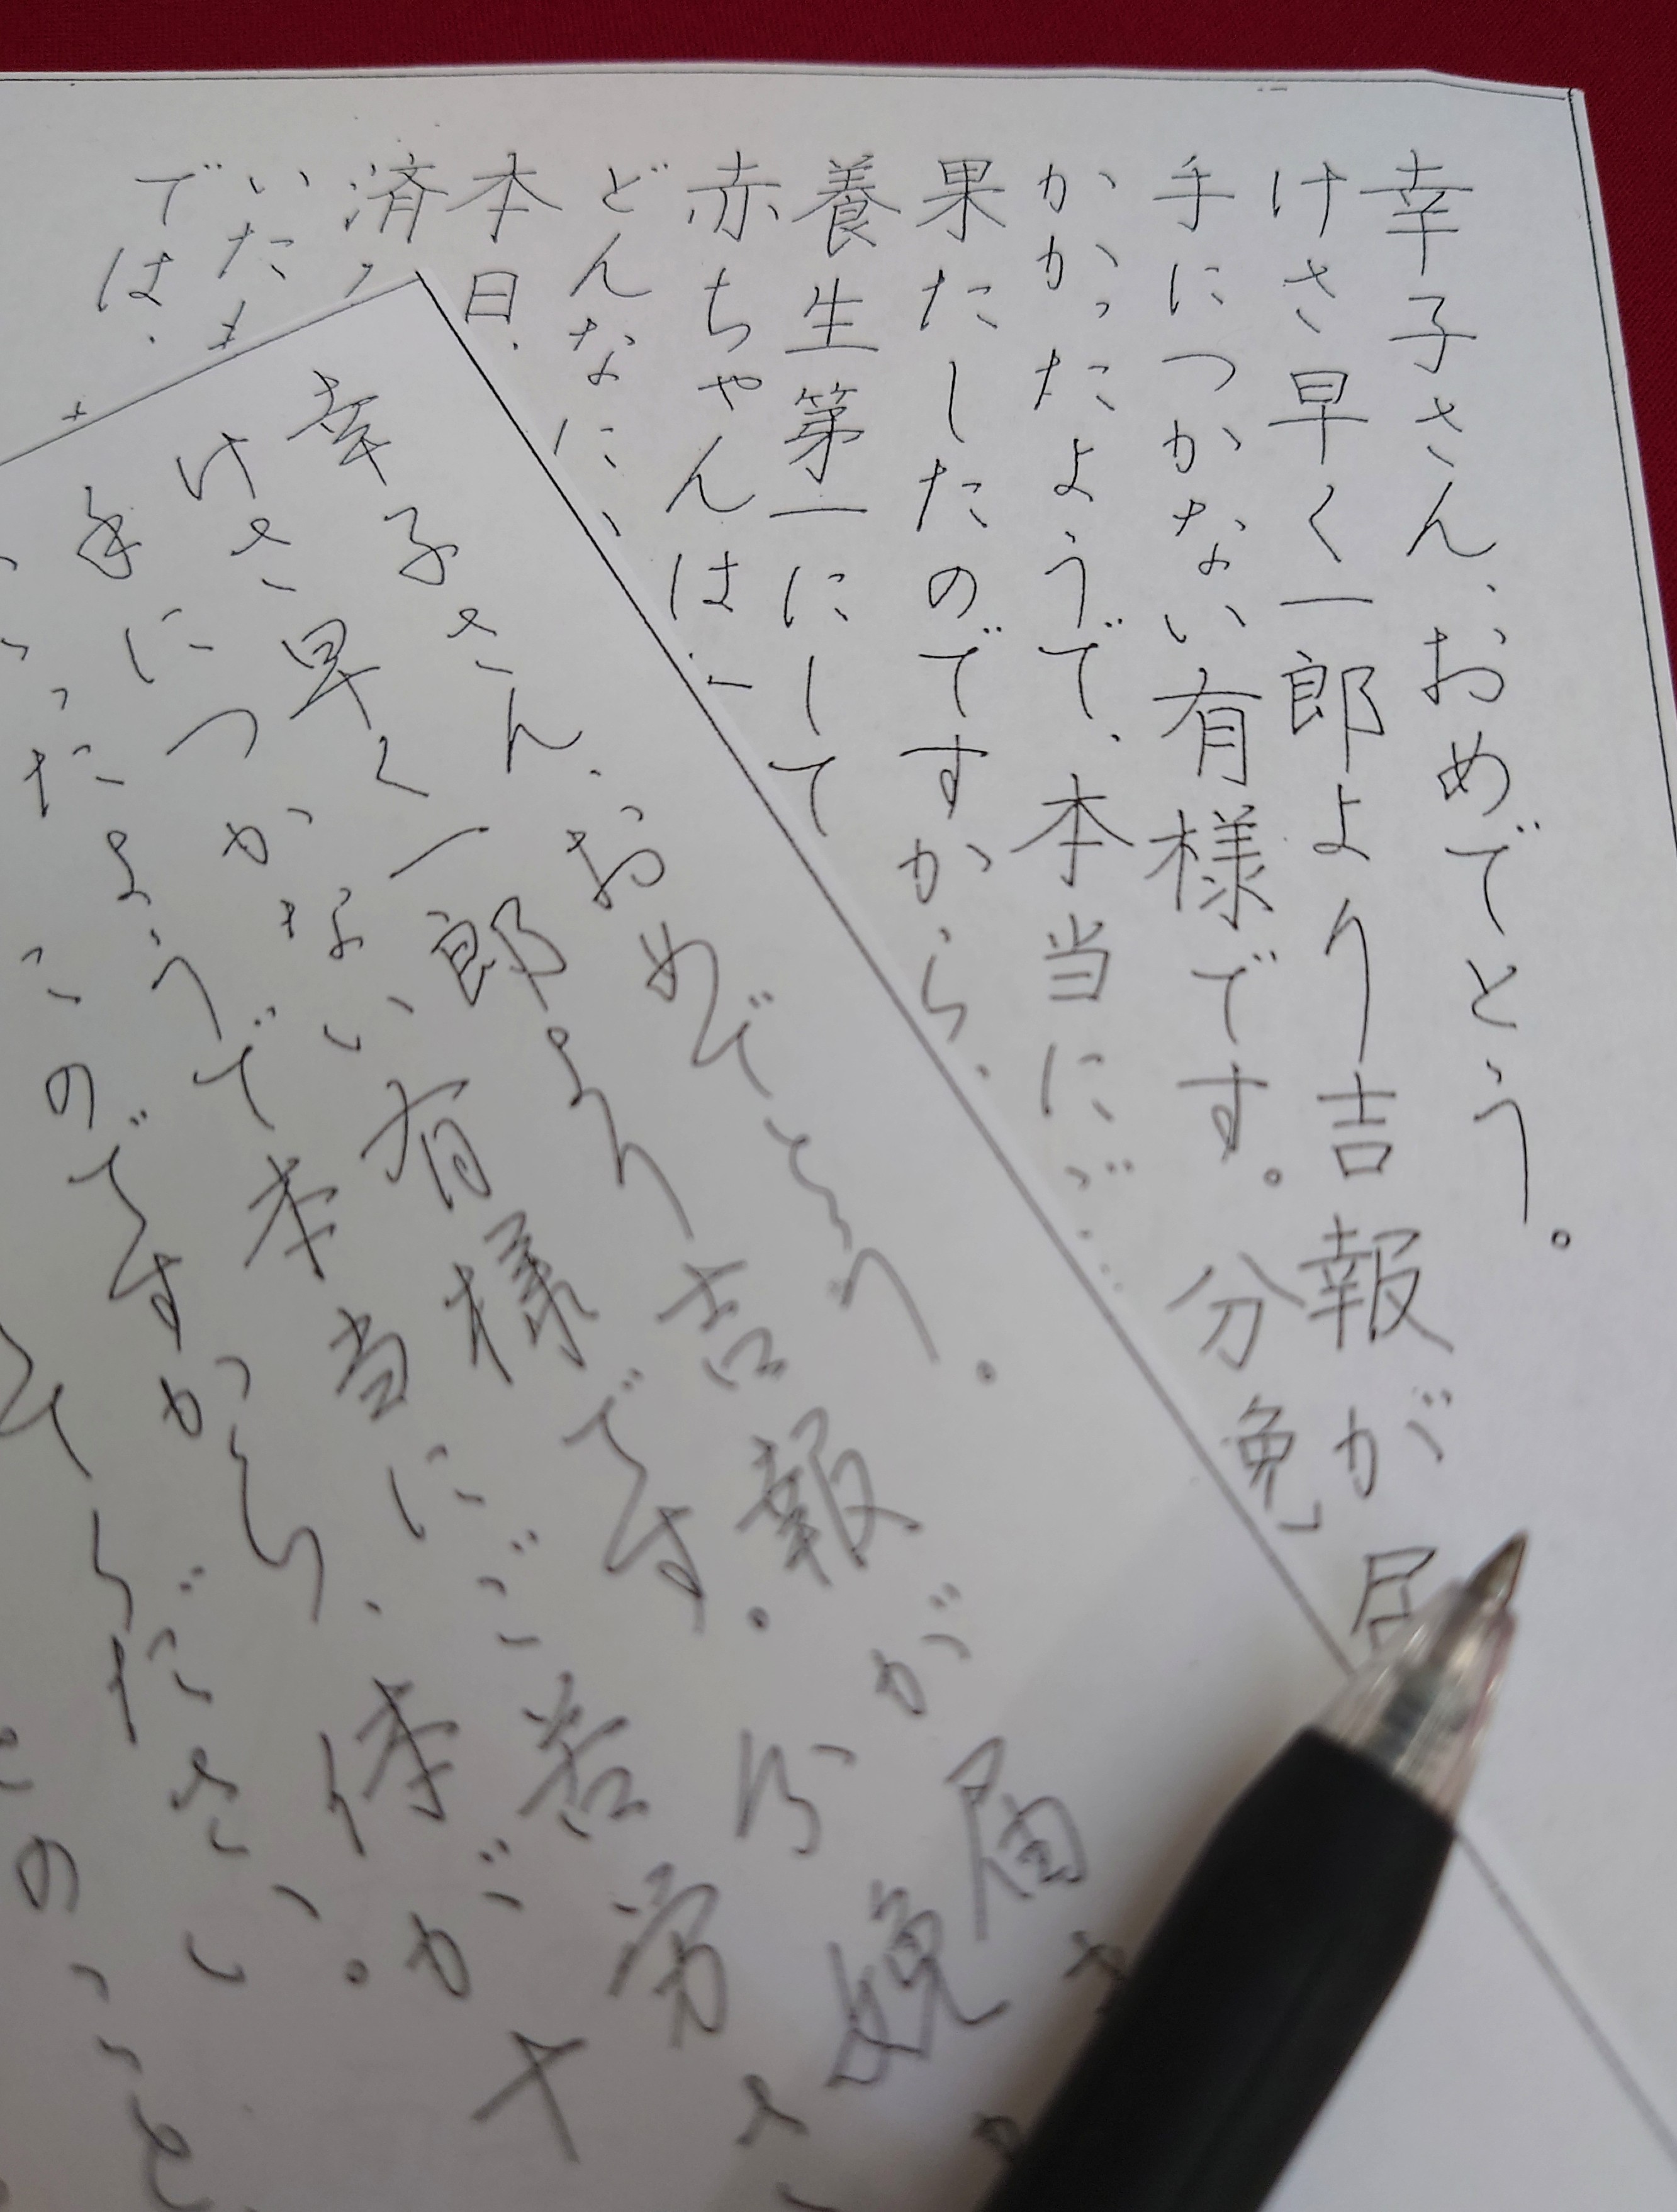 幸子さん、おめでとう。
けさ早く一郎より吉報が
手につかない有様です。分娩
かかったようで、本当にご
果たしたのですから、
養生第一にして
赤ちゃんは
どんなに
本日、
済
いた
では、
幸子さん、おめでとう。
けさ早く一郎より吉報が届
手につかない有様です。分娩
ったようで本当にご苦労さ
のですから、体が十
ください。
のこと